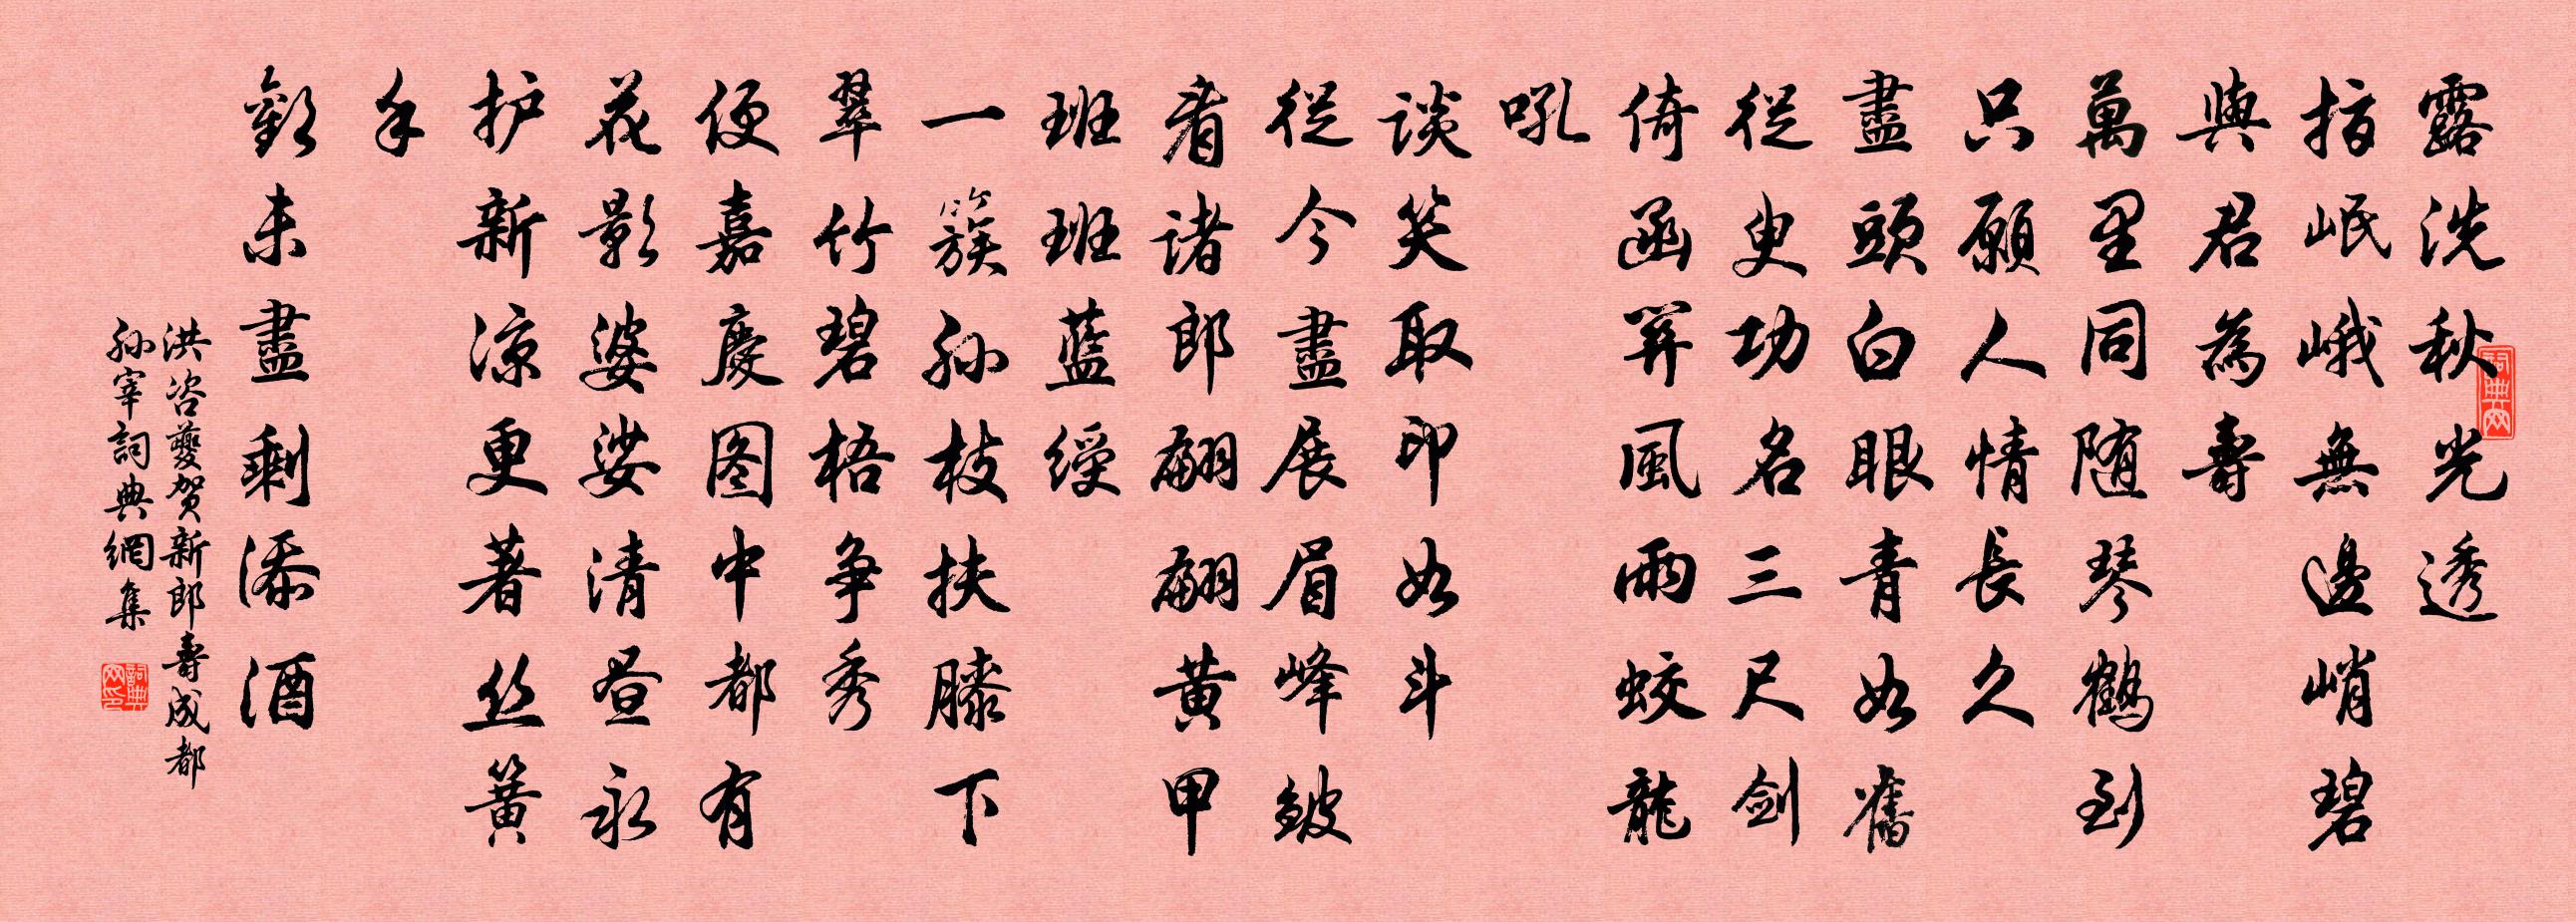 露洗秋光透
指岷峨無邊峭碧
與君為壽
萬里同随琴鶴到
只願人情長久
盡頭白眼青如舊
從臾功名三尺剑
倚函關風雨蛟龍
吼
谈笑取印如斗
從今盡展眉峰皱
看诸郎翩翩黄甲
班班蓝绶
一簇孙枝扶膝下
翠竹碧梧争秀
便嘉慶图中都有
花影婆娑清昼永
护新凉更著丝簧
手
歡未盡剩添酒
洪咨夔贺新郎壽成都
孙宰詞典網集
詞典网
詞典网印